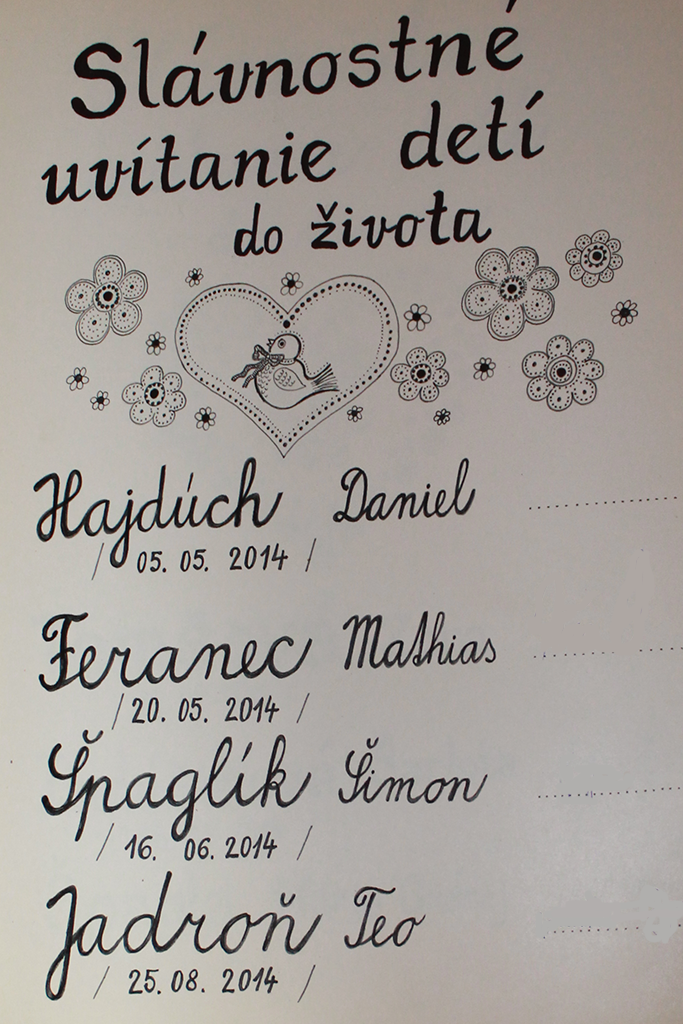 Slávnostné
uvítanie detí
do života
Hajdúch Daniel ....................
/ 05. 05. 2014 /
Feranec Mathias ....................
/ 20. 05. 2014 /
Špaglík Šimon ....................
/ 16. 06. 2014 /
Jadroň Teo ....................
/ 25. 08. 2014 /